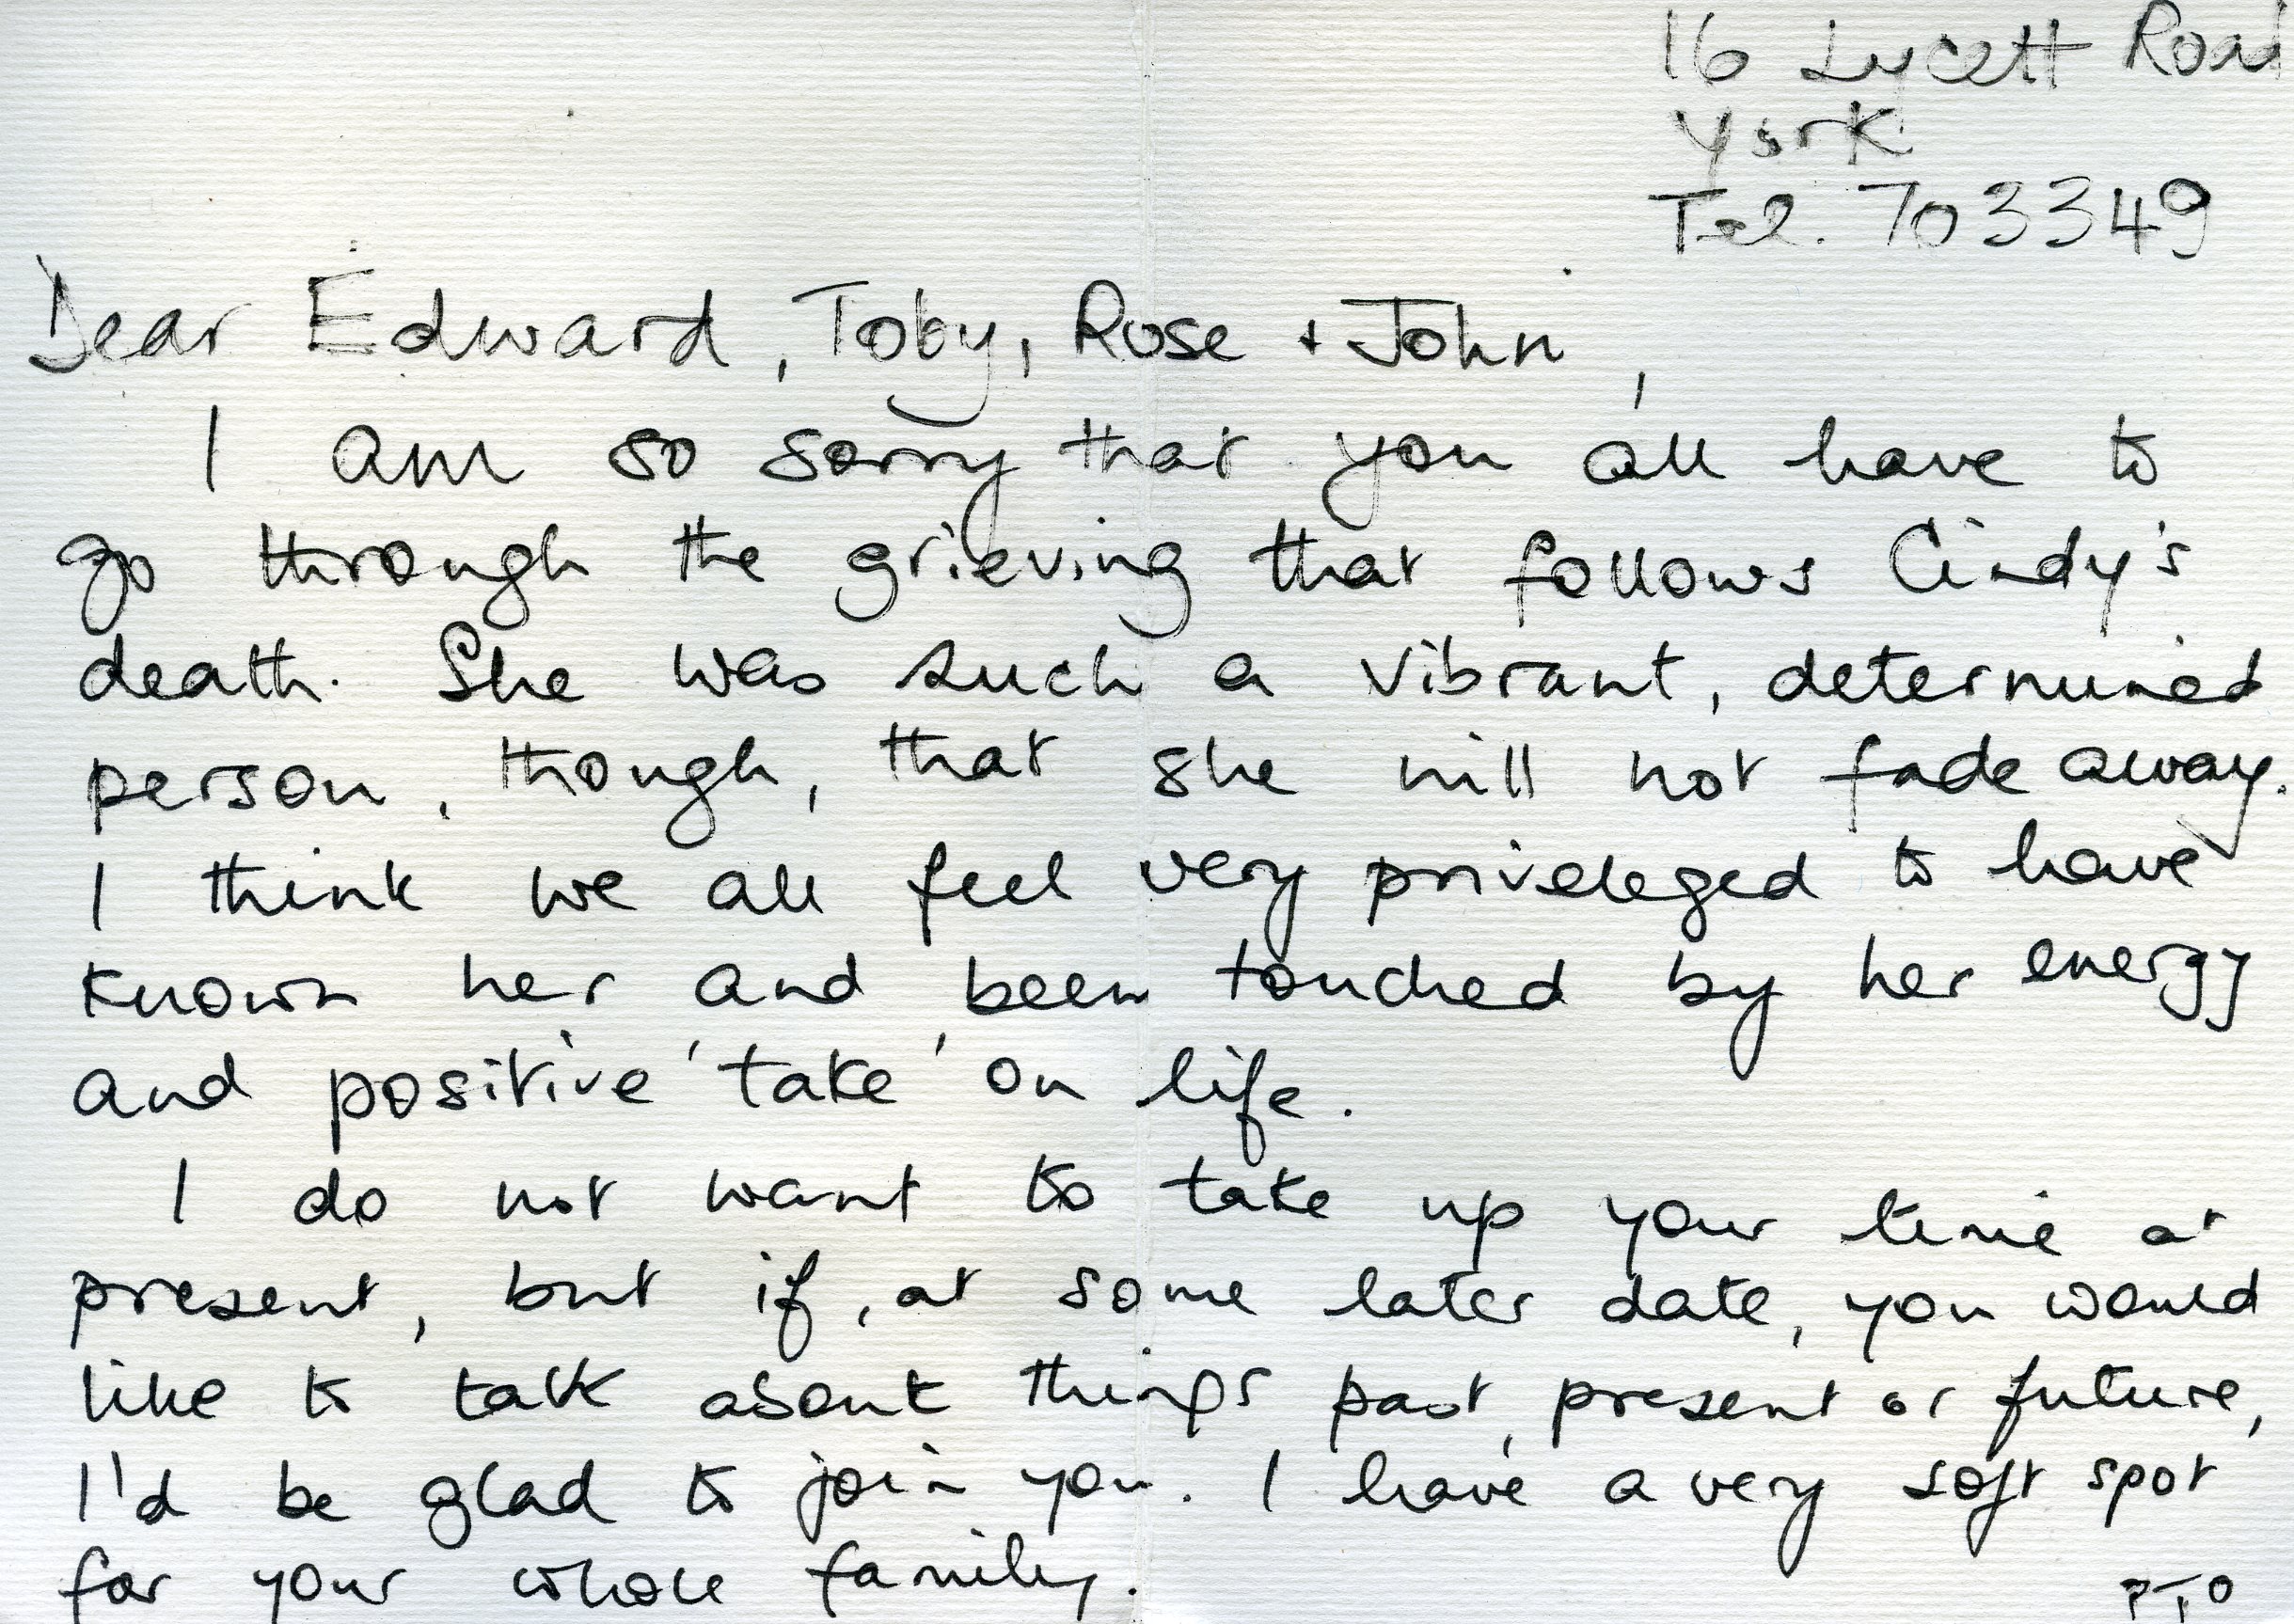 16 Lycett Road
York
Tel. 703349
Dear Edward, Toby, Rose + John,
I am so sorry that you all have to
go through the grieving that follows Cindy's
death. She was such a vibrant, determined
person, though, that she will not fade away.
I think we all feel very priveleged to have
known her and been touched by her energy
and positive 'take' on life.
I do not want to take up your time at
present, but if, at some later date, you would
like to talk about things past, present or future,
I'd be glad to join you. I have a very soft spot
for your whole family.
PTO